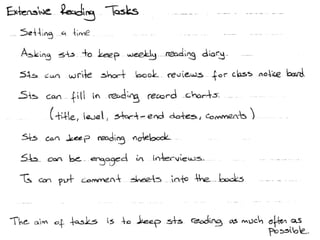 Extensive Reading Tasks
Setting a time
Asking sts to keep weekly reading diary.
Sts can write short book reviews for class notice board.
Sts can fill in reading record charts.
(title, level, start-end dates, comments)
Sts can keep reading notebook
Sts can be engaged in interviews.
Ts can put comment sheets into the books
The aim of tasks is to keep sts reading as much often as
possible.